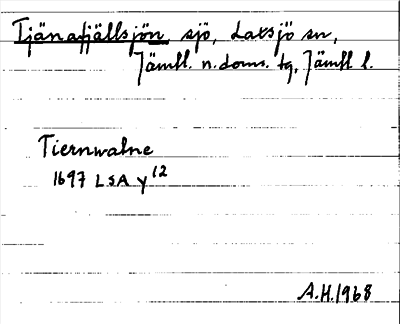 Tjänafjällsjön, sjö, Laxsjö sn,
Jämtl. n. doms. tg, Jämtl l.
Tiernwalne
1697 LSA Y 12
A.H. 1968